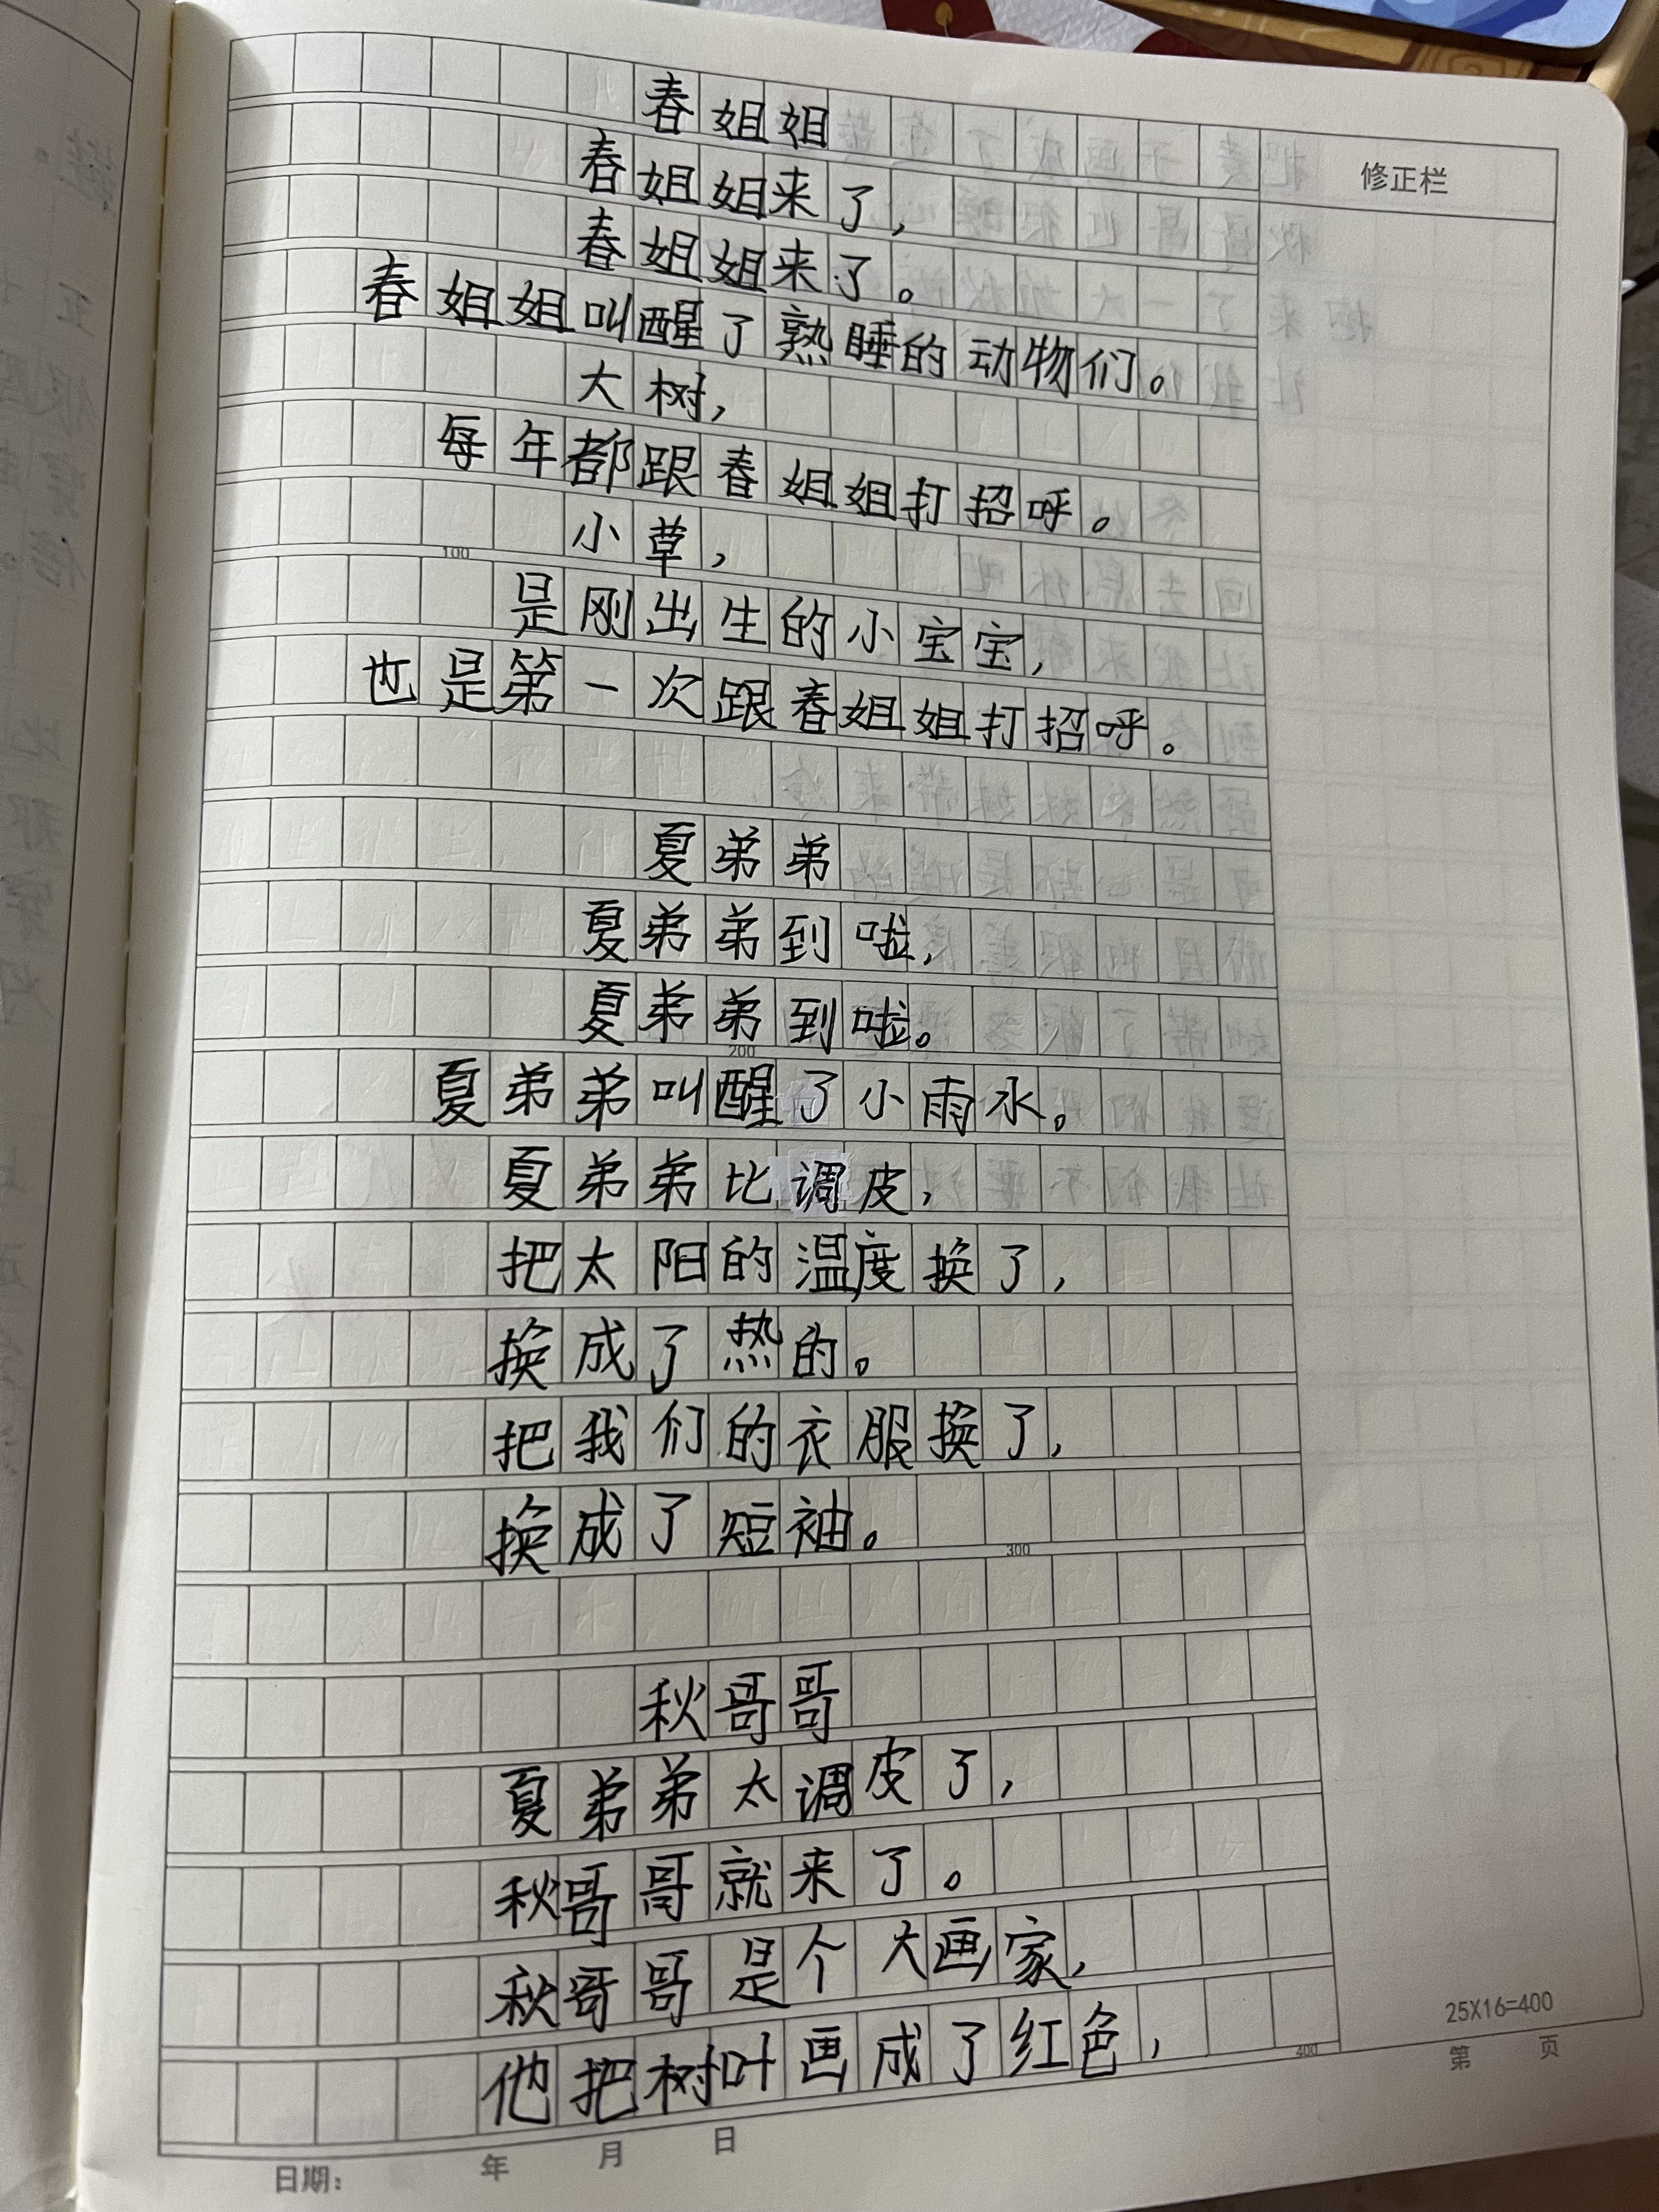 春姐姐
春姐姐来了，
春姐姐来了。
春姐姐叫醒了熟睡的动物们。
大树，
每年都跟春姐姐打招呼。
小草，
是刚出生的小宝宝，
也是第一次跟春姐姐打招呼。
夏弟弟
夏弟弟到啦，
夏弟弟到啦。
夏弟弟叫醒了小雨水。
夏弟弟比调皮，
把太阳的温度换了，
换成了热的。
把我们的衣服换了，
换成了短袖。
秋哥哥
夏弟弟太调皮了，
秋哥哥就来了。
秋哥哥是个大画家，
他把树叶画成了红色，
修正栏
100
200
300
400
25X16=400
第 页
日期： 年 月 日